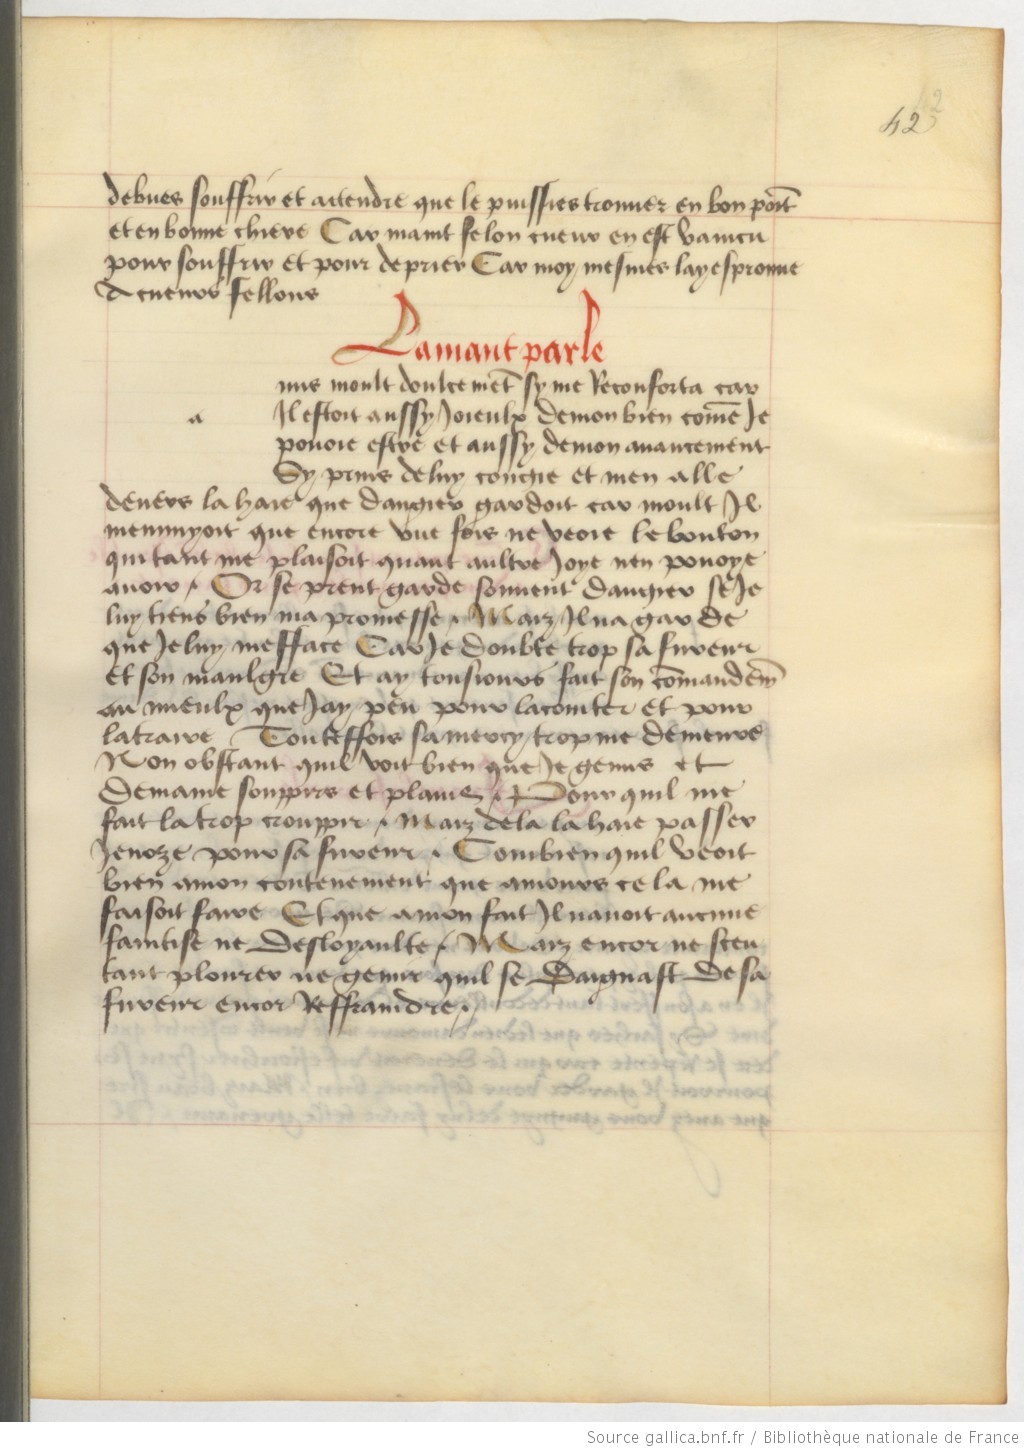 42
2
debues souffrir et attendre que le puissies trouuer en bon point
et en bonne chiere Car maint felon cueur en est vaincu
pour souffrir et pour de prier Car moy mesmes lay esprouue
A cueurs fellons
Lamant parle
mis moult doulcemēt sy me Reconforta car
a
Il estoit aussy Joieulx de mon bien comē Je
pouoie estre et aussy de mon auancement
Sy prins de luy congie et men alle
deuers la haie que dangier gardoit car moult Il
mennuyoit que encore vne fois ne veoie le bouton
qui tant me plaisoit quant aultre Joye nen pouoye
auoir . Or se prent garde souuent dangier se Je
luy tiens bien ma promesse . Maiz Il na garde
que Je luy mefface Car Je doubte trop sa fureur
et son maulgre Et ay tousiours fait son cōmandemē
au mieulx que Jay peu pour lacointer et pour
latraire Touteffois sa mercy trop me demeure
Non obstant quil voit bien que Je gemis et
demaine souppirs et plains . Pour quil me
fait la trop crouppir . Maiz dela la haie passer
Je noze pour sa fureur . Combien quil veoit
bien a mon contenement que amours ce la me
faisoit faire Et que a mon fait Il nauoit aucune
faintise ne desloyaulte . Maiz encor ne sceu
tant plourer ne gemir quil se daignast de sa
fureur encor Reffraindre .
Source gallica.bnf.fr / Bibliothèque nationale de France